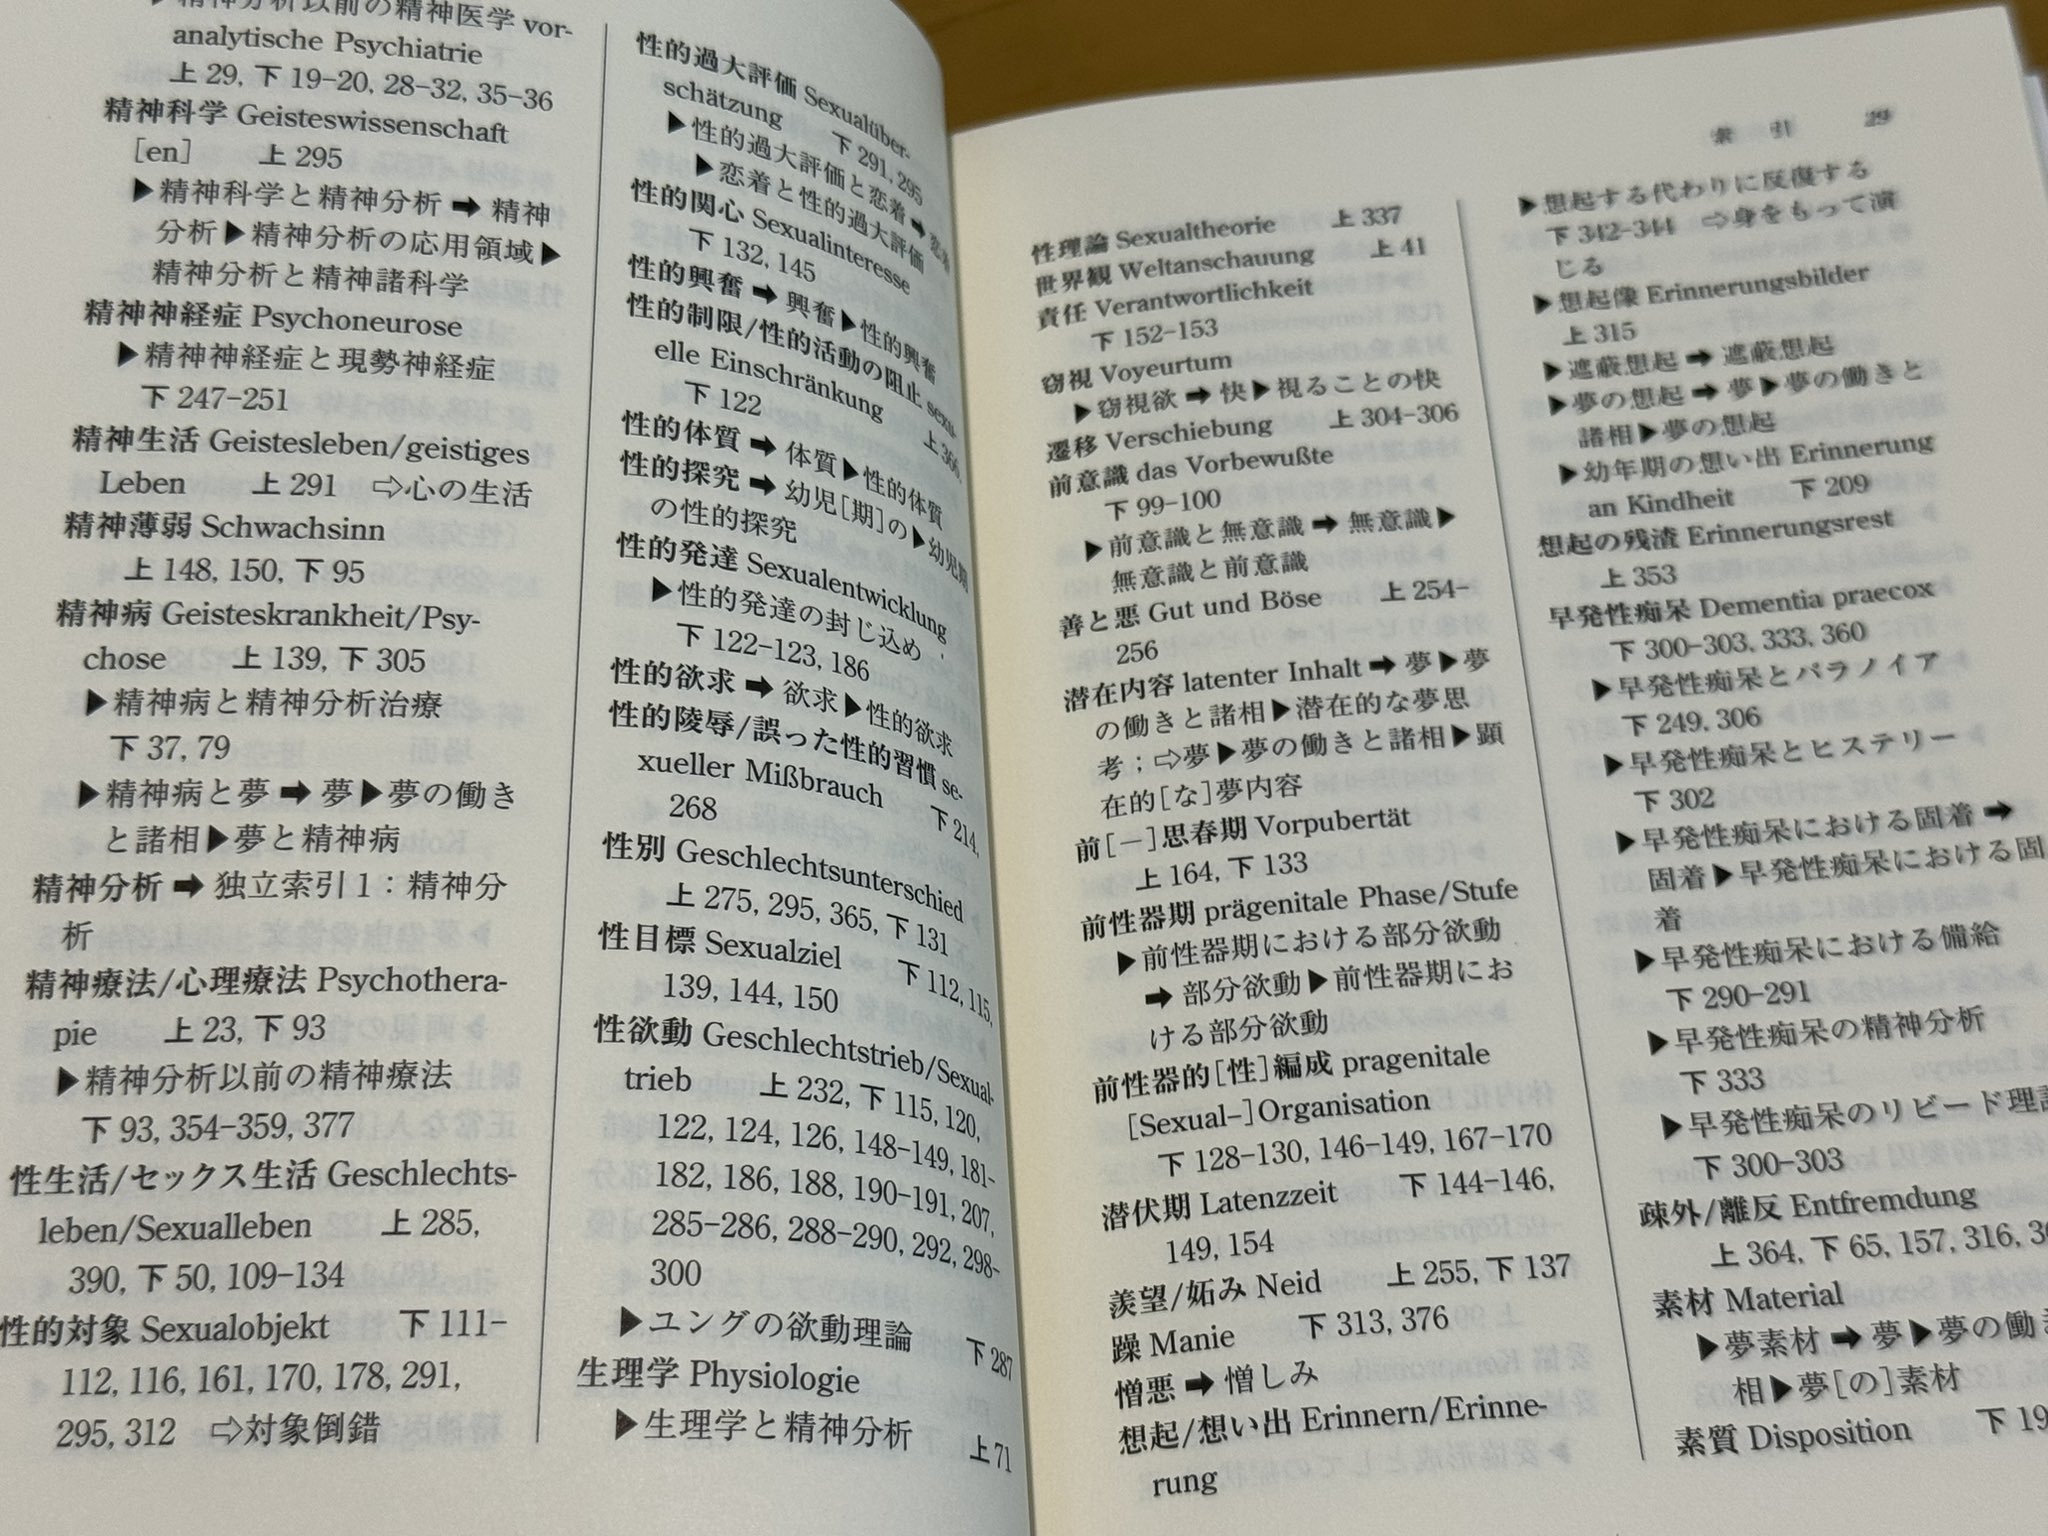 ▶精神分析以前の精神医学 vor-
analytische Psychiatrie
上 29, 下 19-20, 28-32, 35-36
精神科学 Geisteswissenschaft
[en]　上 295
▶精神科学と精神分析 ➡ 精神
分析▶精神分析の応用領域▶
精神分析と精神諸科学
精神神経症 Psychoneurose
▶精神神経症と現勢神経症
下 247-251
精神生活 Geistesleben/geistiges
Leben　上 291　⇨心の生活
精神薄弱 Schwachsinn
上 148, 150, 下 95
精神病 Geisteskrankheit/Psy-
chose　上 139, 下 305
▶精神病と精神分析治療
下 37, 79
▶精神病と夢 ➡ 夢▶夢の働き
と諸相▶夢と精神病
精神分析 ➡ 独立索引 1：精神分
析
精神療法/心理療法 Psychothera-
pie　上 23, 下 93
▶精神分析以前の精神療法
下 93, 354-359, 377
性生活/セックス生活 Geschlechts-
leben/Sexualleben　上 285,
390, 下 50, 109-134
性的対象 Sexualobjekt　下 111-
112, 116, 161, 170, 178, 291,
295, 312　⇨対象倒錯
性的過大評価 Sexualüber-
schätzung　下 291, 295
▶性的過大評価と恋着 ➡ 恋着
▶恋着と性的過大評価
性的関心 Sexualinteresse
下 132, 145
性的興奮 ➡ 興奮▶性的興奮
性的制限/性的活動の阻止 sexu-
elle Einschränkung　上 366,
下 122
性的体質 ➡ 体質▶性的体質
性的探究 ➡ 幼児[期]の▶幼児期
の性的探究
性的発達 Sexualentwicklung
▶性的発達の封じ込め
下 122-123, 186
性的欲求 ➡ 欲求▶性的欲求
性的陵辱/誤った性的習慣 se-
xueller Mißbrauch　下 214,
268
性別 Geschlechtsunterschied
上 275, 295, 365, 下 131
性目標 Sexualziel　下 112, 115,
139, 144, 150
性欲動 Geschlechtstrieb/Sexual-
trieb　上 232, 下 115, 120,
122, 124, 126, 148-149, 181-
182, 186, 188, 190-191, 207,
285-286, 288-290, 292, 298-
300
▶ユングの欲動理論　下 287
生理学 Physiologie
▶生理学と精神分析　上 71
索　引　29
性理論 Sexualtheorie　上 337
世界観 Weltanschauung　上 41
責任 Verantwortlichkeit
下 152-153
窃視 Voyeurtum
▶窃視欲 ➡ 快▶視ることの快
遷移 Verschiebung　上 304-306
前意識 das Vorbewußte
下 99-100
▶前意識と無意識 ➡ 無意識▶
無意識と前意識
善と悪 Gut und Böse　上 254-
256
潜在内容 latenter Inhalt ➡ 夢▶夢
の働きと諸相▶潜在的な夢思
考；⇨夢▶夢の働きと諸相▶顕
在的[な]夢内容
前[-]思春期 Vorpubertät
上 164, 下 133
前性器期 prägenitale Phase/Stufe
▶前性器期における部分欲動
➡ 部分欲動▶前性器期にお
ける部分欲動
前性器的[性]編成 pragenitale
[Sexual-]Organisation
下 128-130, 146-149, 167-170
潜伏期 Latenzzeit　下 144-146,
149, 154
羨望/妬み Neid　上 255, 下 137
躁 Manie　下 313, 376
憎悪 ➡ 憎しみ
想起/想い出 Erinnern/Erinne-
rung
▶想起する代わりに反復する
下 342-344　⇨身をもって演
じる
▶想起像 Erinnerungsbilder
上 315
▶遮蔽想起 ➡ 遮蔽想起
▶夢の想起 ➡ 夢▶夢の働きと
諸相▶夢の想起
▶幼年期の想い出 Erinnerung
an Kindheit　下 209
想起の残渣 Erinnerungsrest
上 353
早発性痴呆 Dementia praecox
下 300-303, 333, 360
▶早発性痴呆とパラノイア
下 249, 306
▶早発性痴呆とヒステリー
下 302
▶早発性痴呆における固着 ➡
固着▶早発性痴呆における固
着
▶早発性痴呆における備給
下 290-291
▶早発性痴呆の精神分析
下 333
▶早発性痴呆のリビード理論
下 300-303
疎外/離反 Entfremdung
上 364, 下 65, 157, 316,
素材 Material
▶夢素材 ➡ 夢▶夢の働き
相▶夢[の]素材
素質 Disposition　下